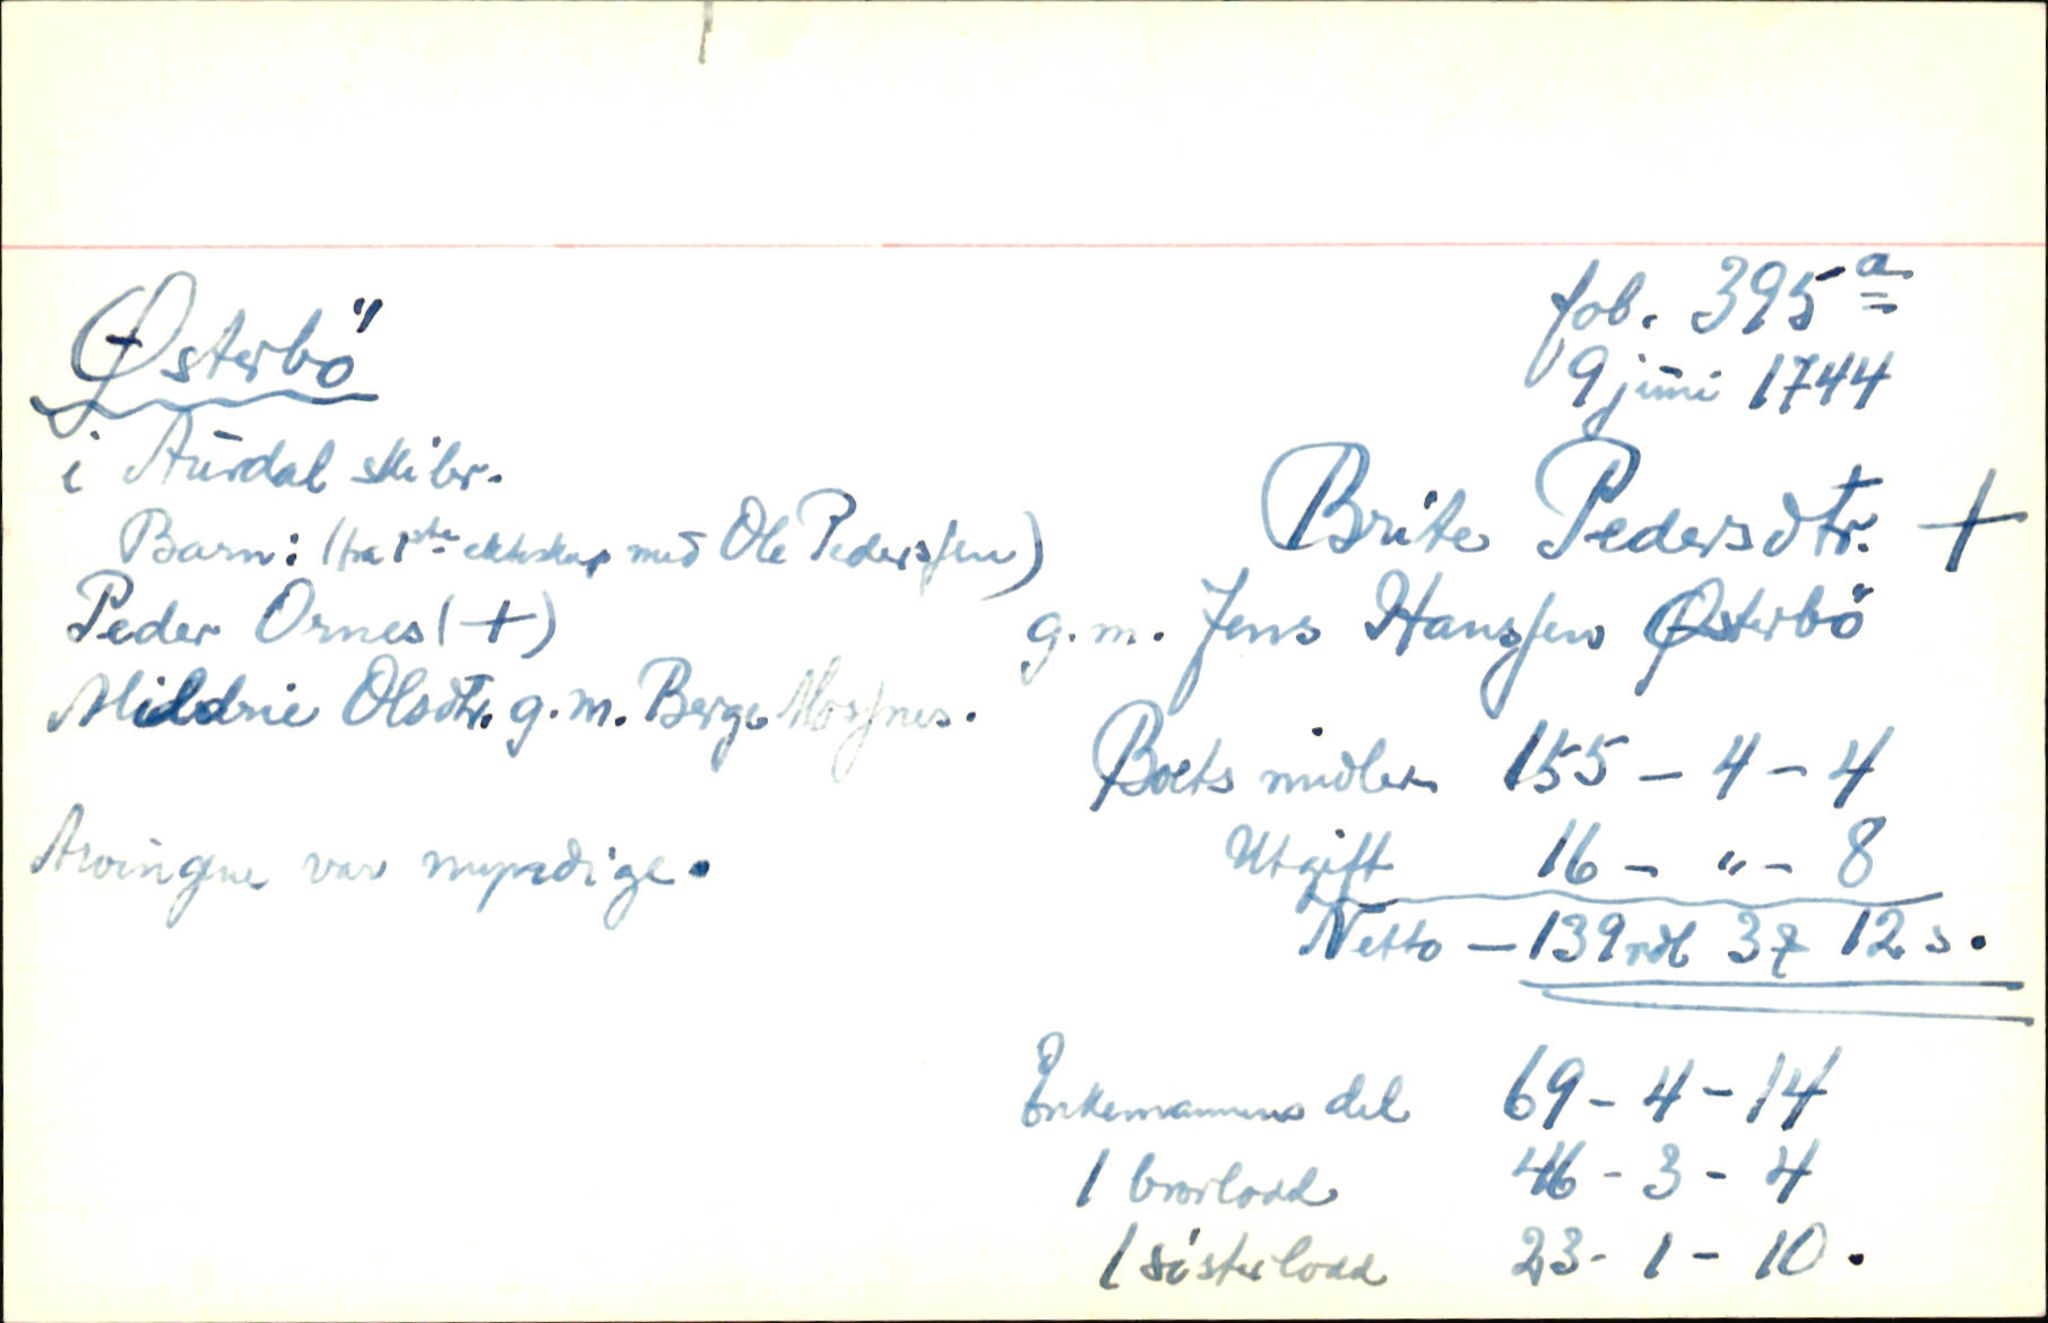 fol. 395 a
9 juni 1744
Østerbö
i Aurdal skibr.
Barn: (fra 1ste ekteskap med Ole Pederssen)
Peder Ornes (+)
Mildrie Olsdtr. g.m. Berge Mosnes.
Arvingene var myndige.
Brite Pedersdtr. +
g.m. Jens Hanssen Østerbö
Boets midler 155 - 4 - 4
Utgift 16 - " - 8
Netto - 139 rdl 3 12 s.
Enkemannens del 69 - 4 - 14
1 brorlodd 46 - 3 - 4
1 sösterlodd 23 - 1 - 10.